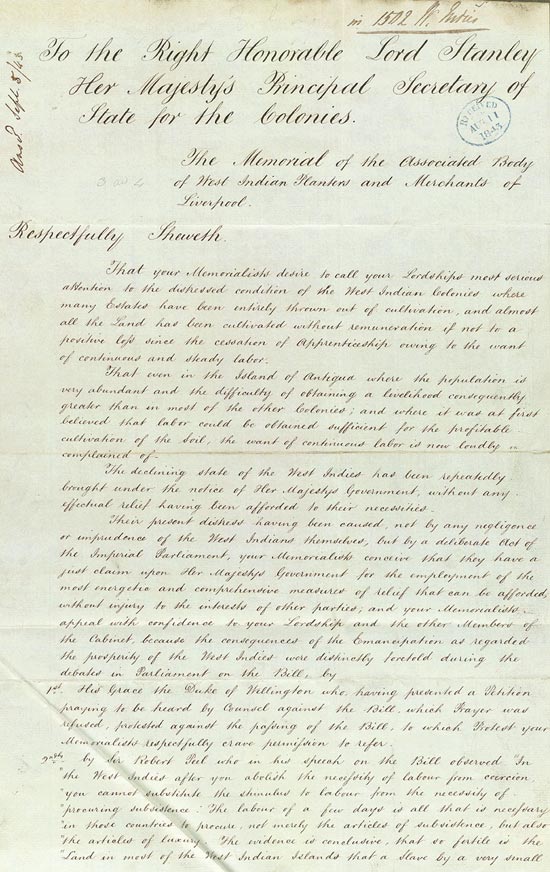 in 1502 W. Indies
Ansd. Sept. 8/43
To the Right Honorable Lord Stanley
Her Majesty's Principal Secretary of
State for the Colonies.
RECEIVED
AUG 11
1843
The Memorial of the Associated Body
of West Indian Planters and Merchants of
Liverpool.
Respectfully Sheweth.
That your Memorialists desire to call your Lordships most serious
attention to the distressed condition of the West Indian Colonies where
many Estates have been entirely thrown out of cultivation, and almost
all the Land has been cultivated without remuneration if not to a
positive loss since the cessation of Apprenticeship owing to the want
of continuous and steady labor.
That even in the Island of Antigua where the population is
very abundant and the difficulty of obtaining a livelihood consequently
greater than in most of the other Colonies; and where it was at first
believed that labor could be obtained sufficient for the profitable
cultivation of the Soil, the want of continuous labor is now loudly
complained of.
The declining state of the West Indies has been repeatedly
bought under the notice of Her Majestys Government, without any
effectual relief having been afforded to their necessities.
Their present distress having been caused, not by any negligence
or imprudence of the West Indians themselves, but by a deliberate Act of
the Imperial Parliament, your Memorialists conceive that they have a
just claim upon Her Majestys Government for the employment of the
most energetic and comprehensive measures of relief that can be afforded,
without injury to the interests of other parties; and your Memorialists
appeal with confidence to your Lordship and the other Members of
the Cabinet, because the consequences of the Emancipation as regarded
the prosperity of the West Indies were distinctly foretold during the
debates in Parliament on the Bill, by
1st. His Grace the Duke of Wellington who, having presented a Petition
praying to be heard by Counsel against the Bill, which Prayer was
refused, protested against the passing of the Bill, to which Protest your
Memorialists respectfully crave permission to refer.
2ndly by Sir Robert Peel who in his speech on the Bill observed "In
"the West Indies after you abolish the necessity of labour from coercion
"you cannot substitute the stimulus to labour from the necessity of
"procuring subsistence. "The labour of a few days is all that is necessary
"in those countries to procure, not merely the articles of subsistence, but also
"the articles of luxury. "The evidence is conclusive, that so fertile is the
"Land in most of the West Indian Islands that a Slave by a very small